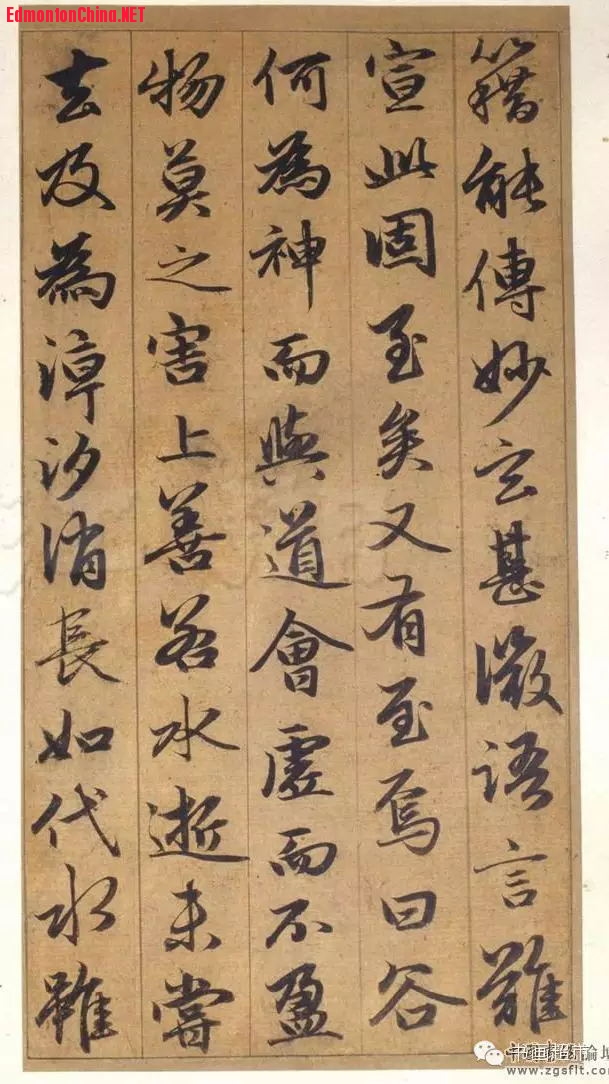 EdmontonChina.NET
籍能傳妙玄甚微語言難
宣此固至矣又有至焉曰谷
何為神而與道會虛而不盈
物莫之害上善若水逝未嘗
去及為漳汐消長如代水雖
www.zgsflt.com